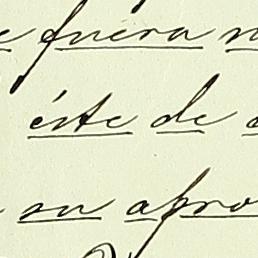 fuera
éste de
su apro